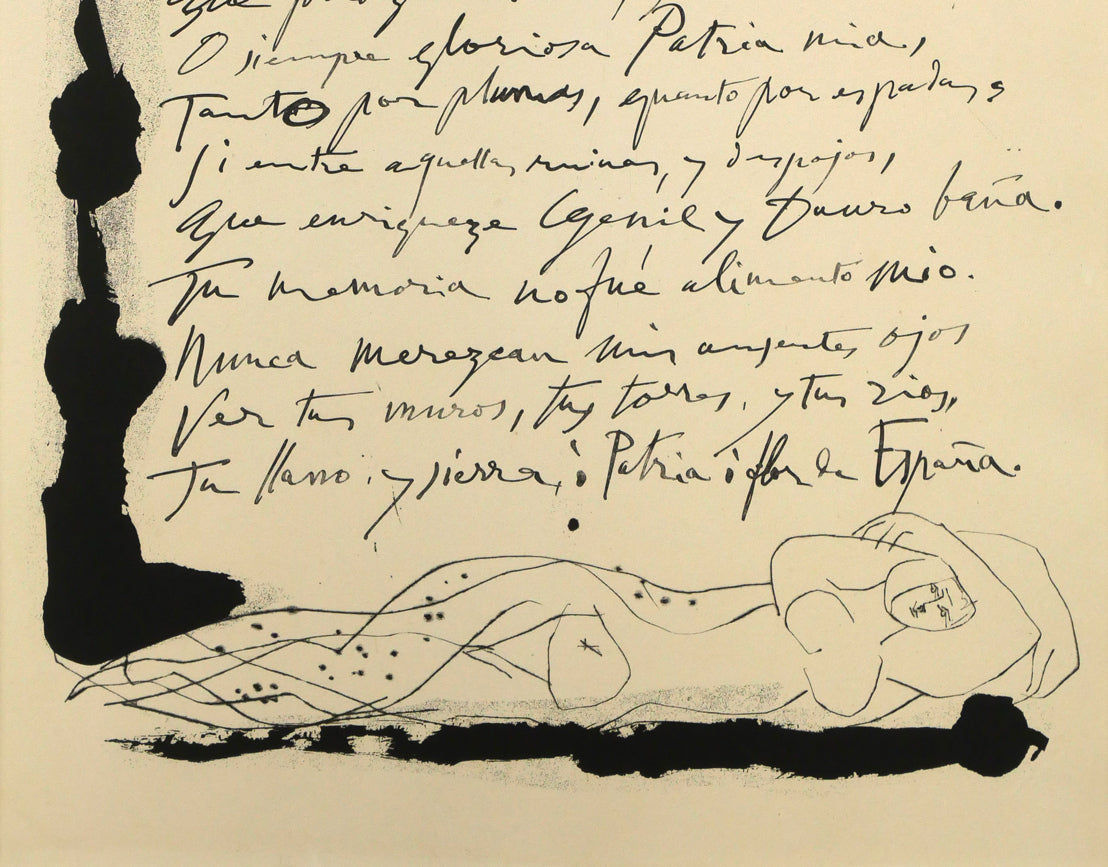 O siempre gloriosa Patria mia,
Tanto por plumas, quanto por espadas,
Si entre aquellas ruinas, y despojos,
Que enriqueze Genil y Dauro baña.
Tu memoria no fué alimento mio.
Nunca merezcan mis ausentes ojos
Ver tus muros, tus torres, y tus rios,
Tu llano, y sierra, ò Patria ò flor de España.